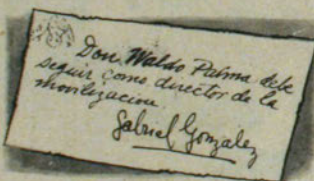 Don Waldo Palma debe
seguir como director de la
movilización.
Gabriel González